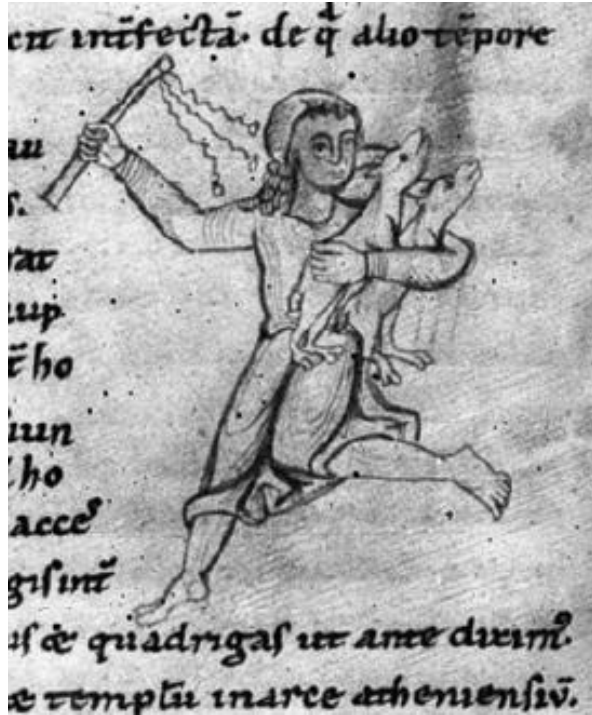 infectā. de q̄ alio tēpore
au
s.
rat
up
t̄ ho
iun
ho
acceˢ
gisint̄
us & quadrigas ut ante diximꝰ.
e templū inarce atheniensiū.